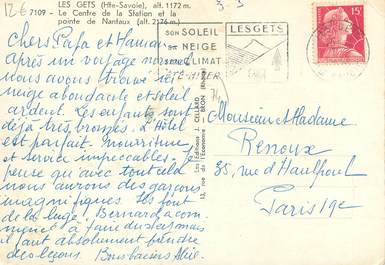 12€
7109 LES GETS (Hte-Savoie), alt. 1172 m.
Le Centre de la Station et la
pointe de Nantaux (alt. 2176 m.)
SON SOLEIL
SA NEIGE
SON CLIMAT
ÉTÉ-HIVER
LES GETS
15F
Les Editions J. CELLARD
BRON (Rhône)
Chers Papa et Maman
après un voyage
nous avons trouvé ici
neige abondante et soleil
ardent. Les enfants sont
déjà très bronzés. L'Hôtel
est parfait. nourriture
et service impeccables. Je
pense qu'avec tout cela
nous aurons des garçons
magnifiques. Ils font
de la luge. Bernard a com
mencé à faire du ski mais
il faut absolument prendre
des leçons. Bons baisers
Monsieur et Madame
Renoux
35, rue d'Hautpoul
Paris 19e